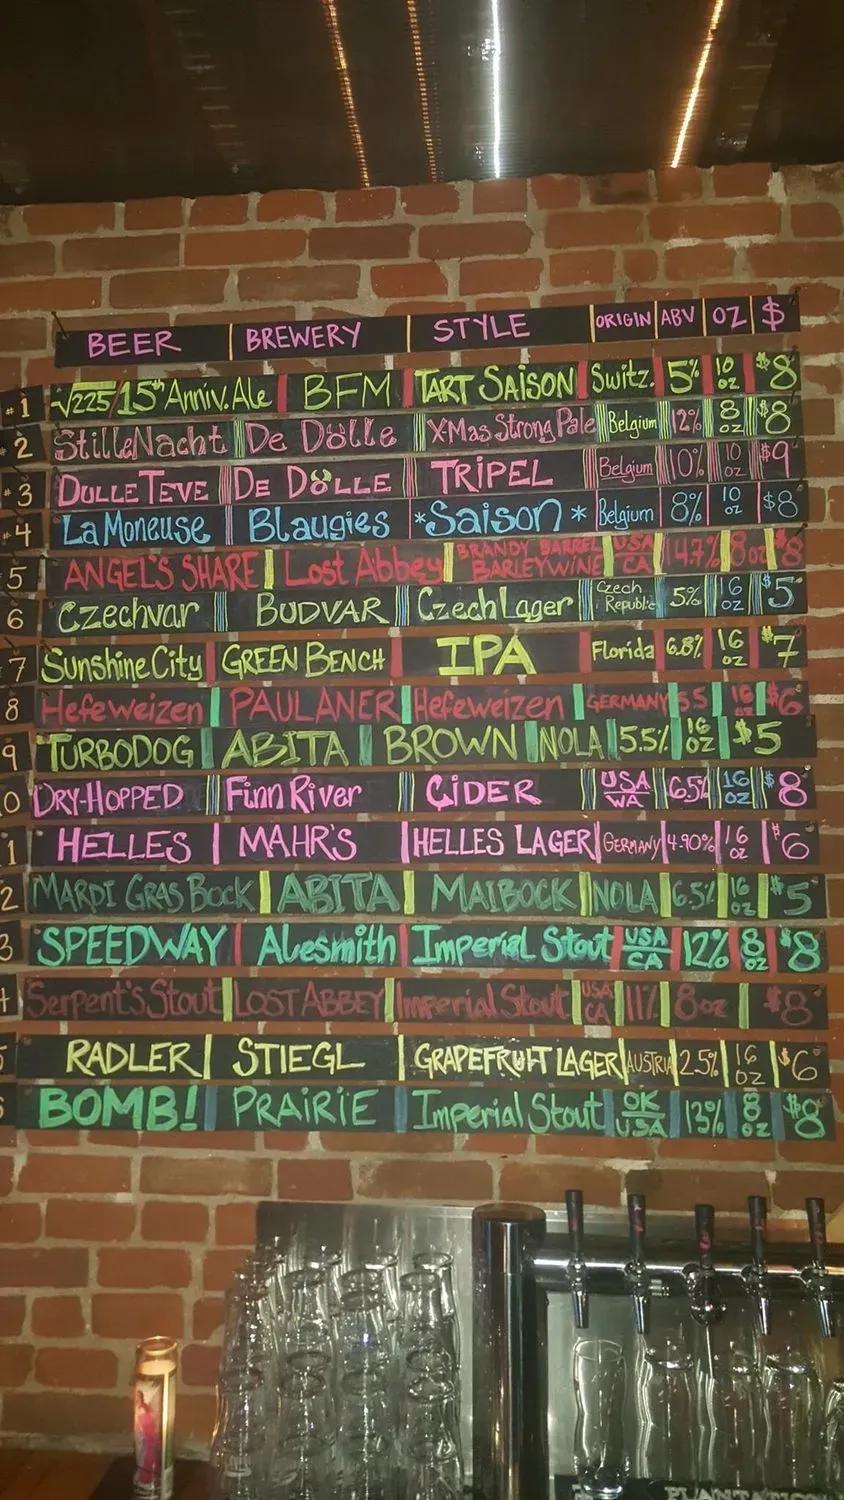 BEER BREWERY STYLE ORIGIN ABV OZ $
#1 √225/15th Anniv. Ale BFM TART SAISON Switz. 5% 10 oz $8
#2 StilleNacht De Dolle X-Mas Strong Pale Belgium 12% 8 oz $8
#3 DULLE TEVE DE DOLLE TRIPEL Belgium 10% 10 oz $9
#4 La Moneuse Blaugies *Saison* Belgium 8% 10 oz $8
5 ANGEL'S SHARE Lost Abbey BRANDY BARREL BARLEYWINE USA CA 14.7% 8oz $8
6 Czechvar BUDVAR Czech Lager Czech Republic 5% 16 oz $5
7 Sunshine City GREEN BENCH IPA Florida 6.8% 16 oz $7
8 Hefeweizen PAULANER Hefeweizen GERMANY 5.5 16 oz $6
9 TURBODOG ABITA BROWN NOLA 5.5% 16 oz $5
0 DRY-HOPPED Finn River CIDER USA WA 6.5% 16 oz $8
1 HELLES MAHR'S HELLES LAGER GERMANY 4.90% 16 oz $6
2 MARDI GRAS BOCK ABITA MAIBOCK NOLA 6.5% 16 oz $5
3 SPEEDWAY Alesmith Imperial Stout USA CA 12% 8 oz $8
4 Serpent's Stout LOST ABBEY Imperial Stout USA CA 11% 8oz $8
5 RADLER STIEGL GRAPEFRUIT LAGER AUSTRIA 2.5% 16 oz $6
6 BOMB! PRAIRIE Imperial Stout OK USA 13% 8 oz $8